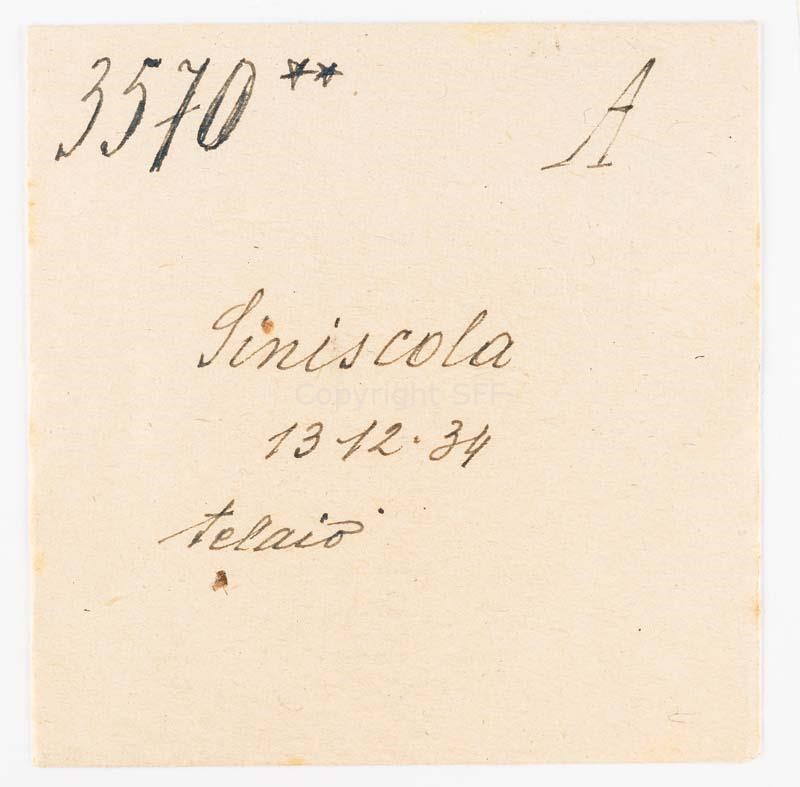 3570** A
Siniscola
Copyright SFF
13-12-34
telaio